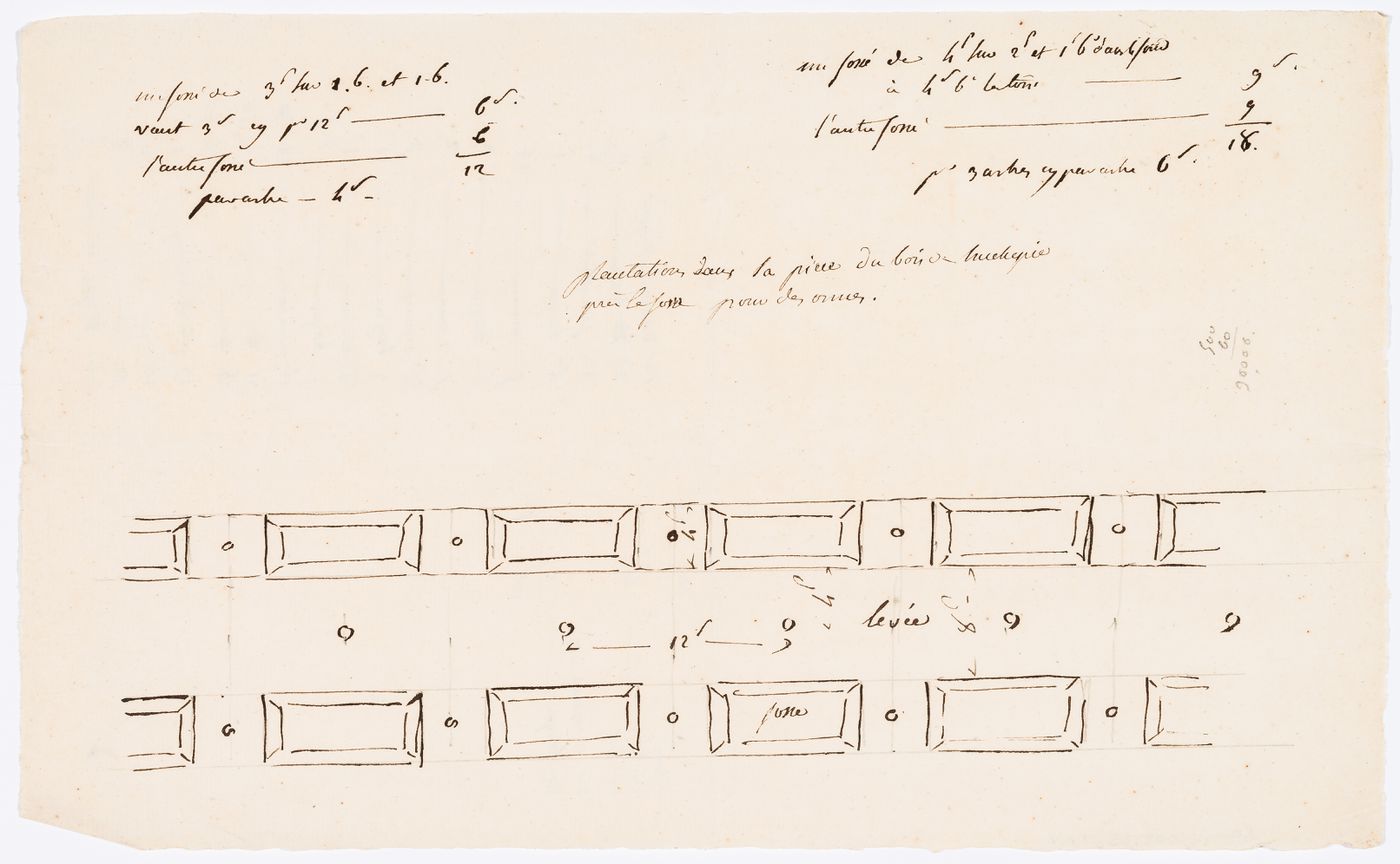 un fossé de 3 sur 1.6. et 1-6.
vaut 3 cy pr 12 6
l'autre fossé 6
12
par arbre - 4 -
un fossé de 4 sur 2 et 1 6 dans le fond
à 4 6 la toise 9
l'autre fossé 9
18.
pr 3 arbres cy par arbre 6
plantations dans la piece du bois de
près le fossé pour des ormes.
500
60
90000.
4
4 levée 8
12
fosse